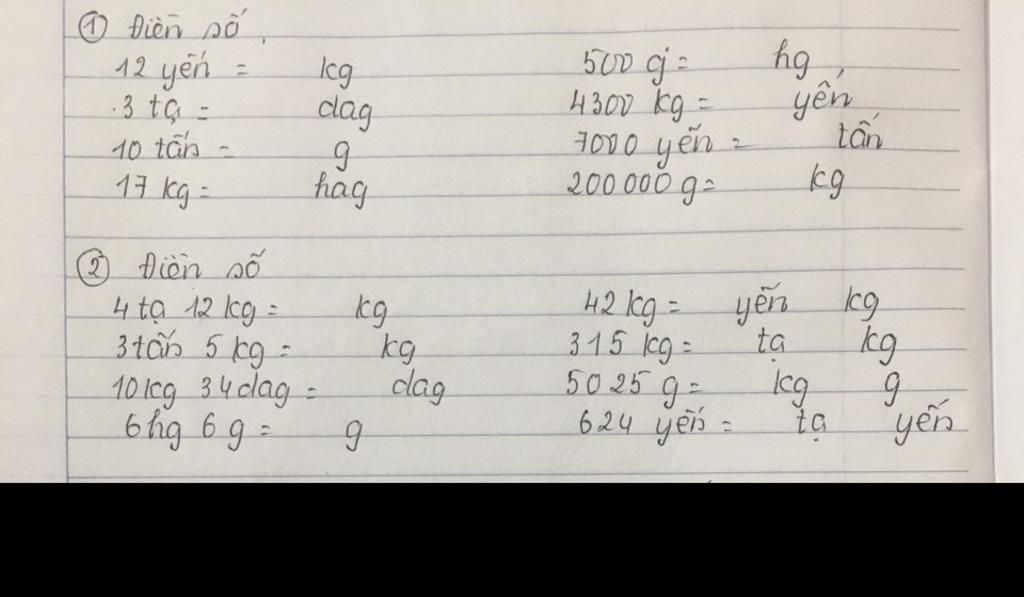 ① Điền số.
12 yến = kg 500 g = hg
3 tạ = dag 4300 kg = yến
10 tấn = g 7000 yến = tấn
17 kg = hag 200 000 g = kg
② Điền số
4 tạ 12 kg = kg 42 kg = yến kg
3 tấn 5 kg = kg 315 kg = tạ kg
10 kg 34 dag = dag 5025 g = kg g
6 hg 6 g = g 624 yến = tạ yến